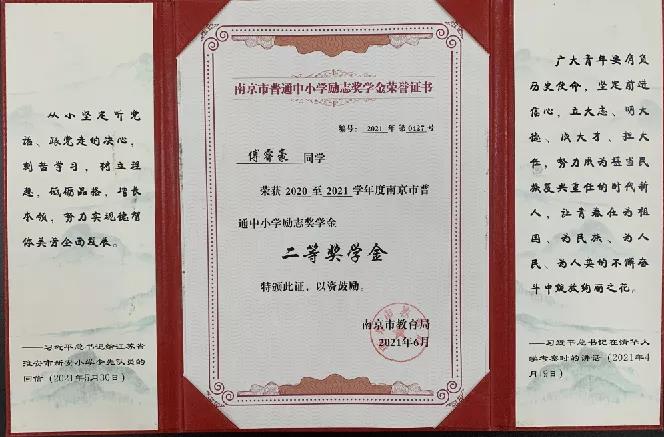 从小坚定听党
话、跟党走的决心，
刻苦学习，树立理
想，砥砺品格，增长
本领，努力实现德智
体美劳全面发展。
——习近平总书记给江苏省
淮安市新安小学少先队员的
回信（2021年5月30日）
南京市普通中小学励志奖学金荣誉证书
编号：2021 年第0437号
傅睿豪 同学
荣获2020至2021学年度南京市普
通中小学励志奖学金
二等奖学金
特颁此证，以资鼓励。
南京市教育局
2021年6月
广大青年要肩负
历史使命，坚定前进
信心，立大志、明大
德、成大才、担大
任，努力成为堪当民
族复兴重任的时代新
人，让青春在为祖
国、为民族、为人
民、为人类的不懈奋
斗中绽放绚丽之花。
——习近平总书记在清华大
学考察时的讲话（2021年4
月19日）